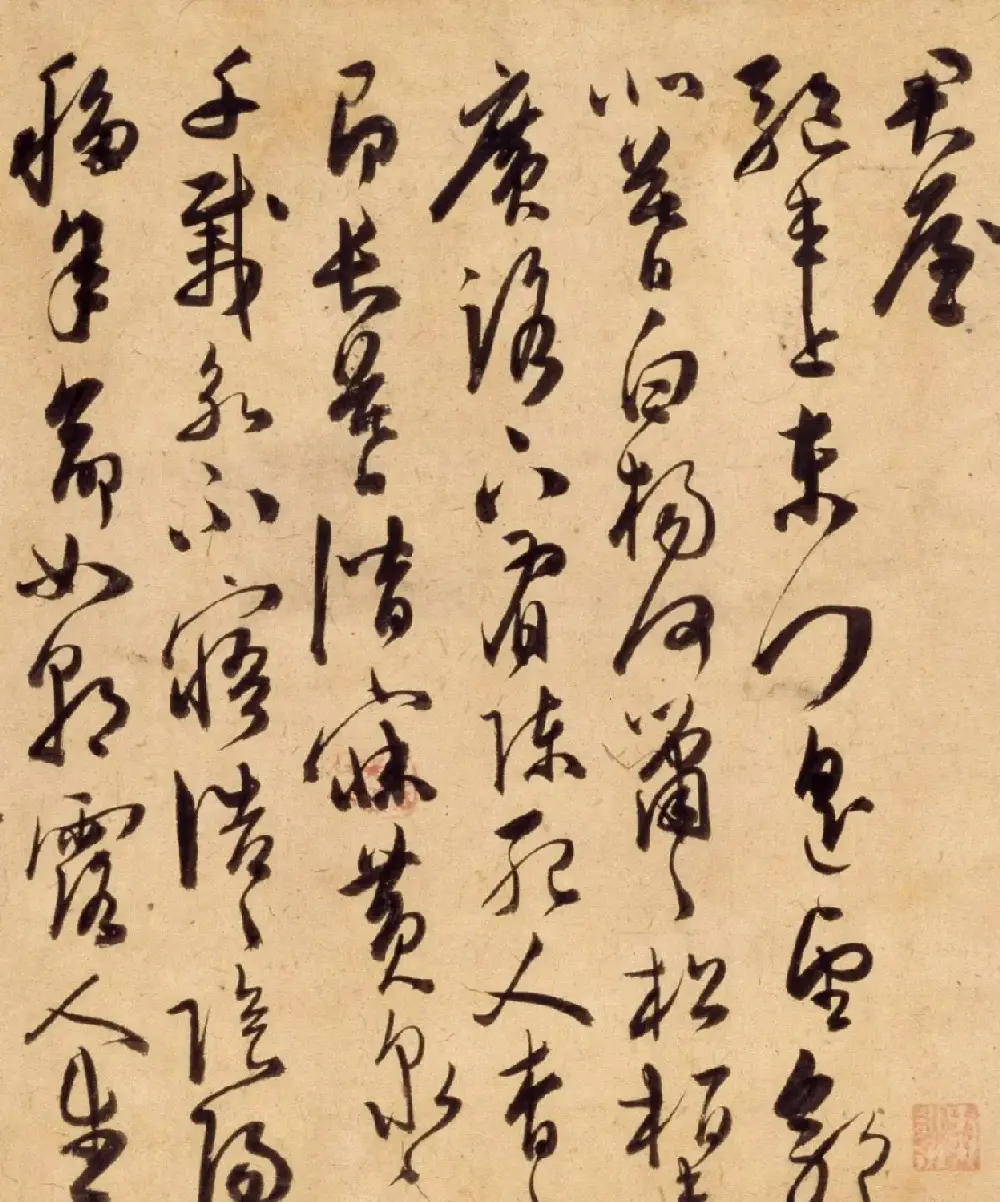 君屋
驅車上東門遙望郭
北墓白楊何蕭〻松柏
廣路下有陳死人杳〻
即長暮潛寐黃泉
千載永不寤浩〻陰陽
移年命如朝露人生